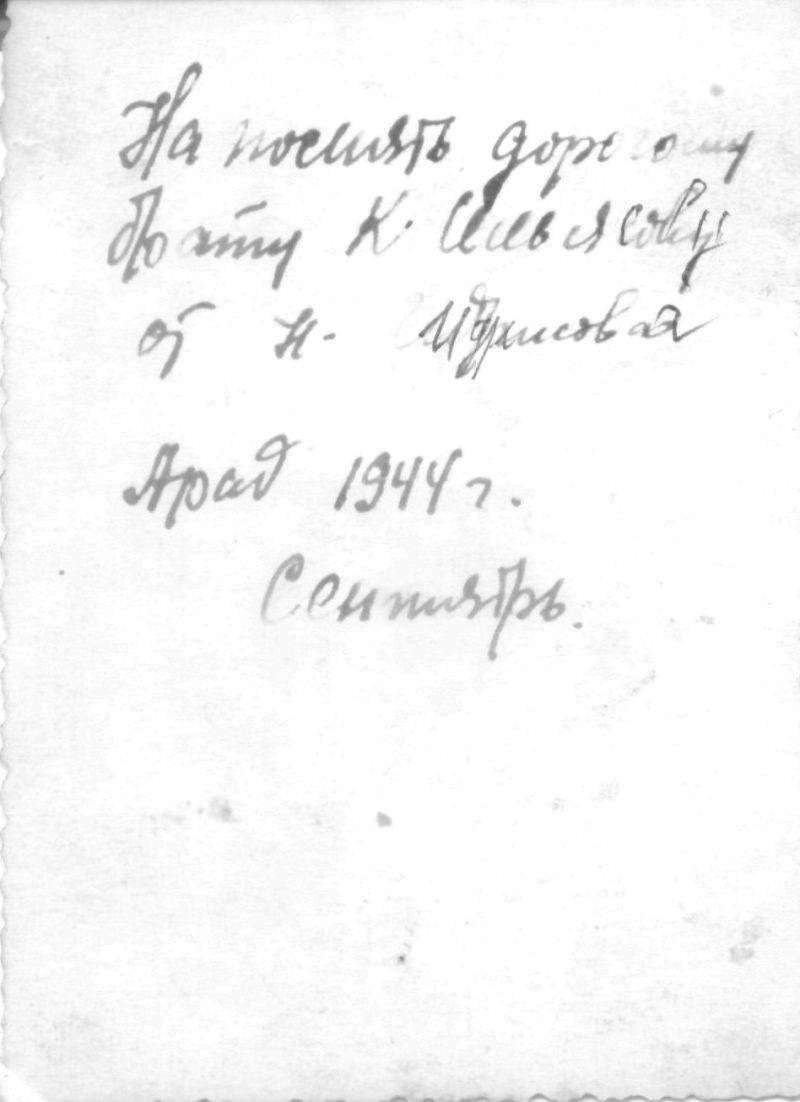 На помять дорогому
брату К. Ильясову
от Н. Идрисова
Арад 1944 г.
Сентябрь.